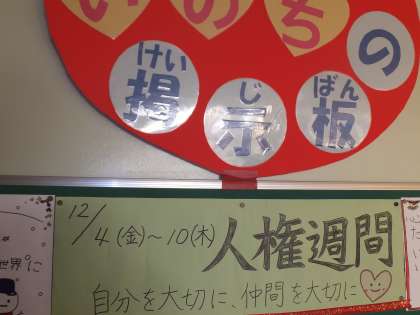 いのちの
けい じ ばん
掲示板
12/4(金)~10(木) 人権週間
自分を大切に、仲間を大切に
世界に